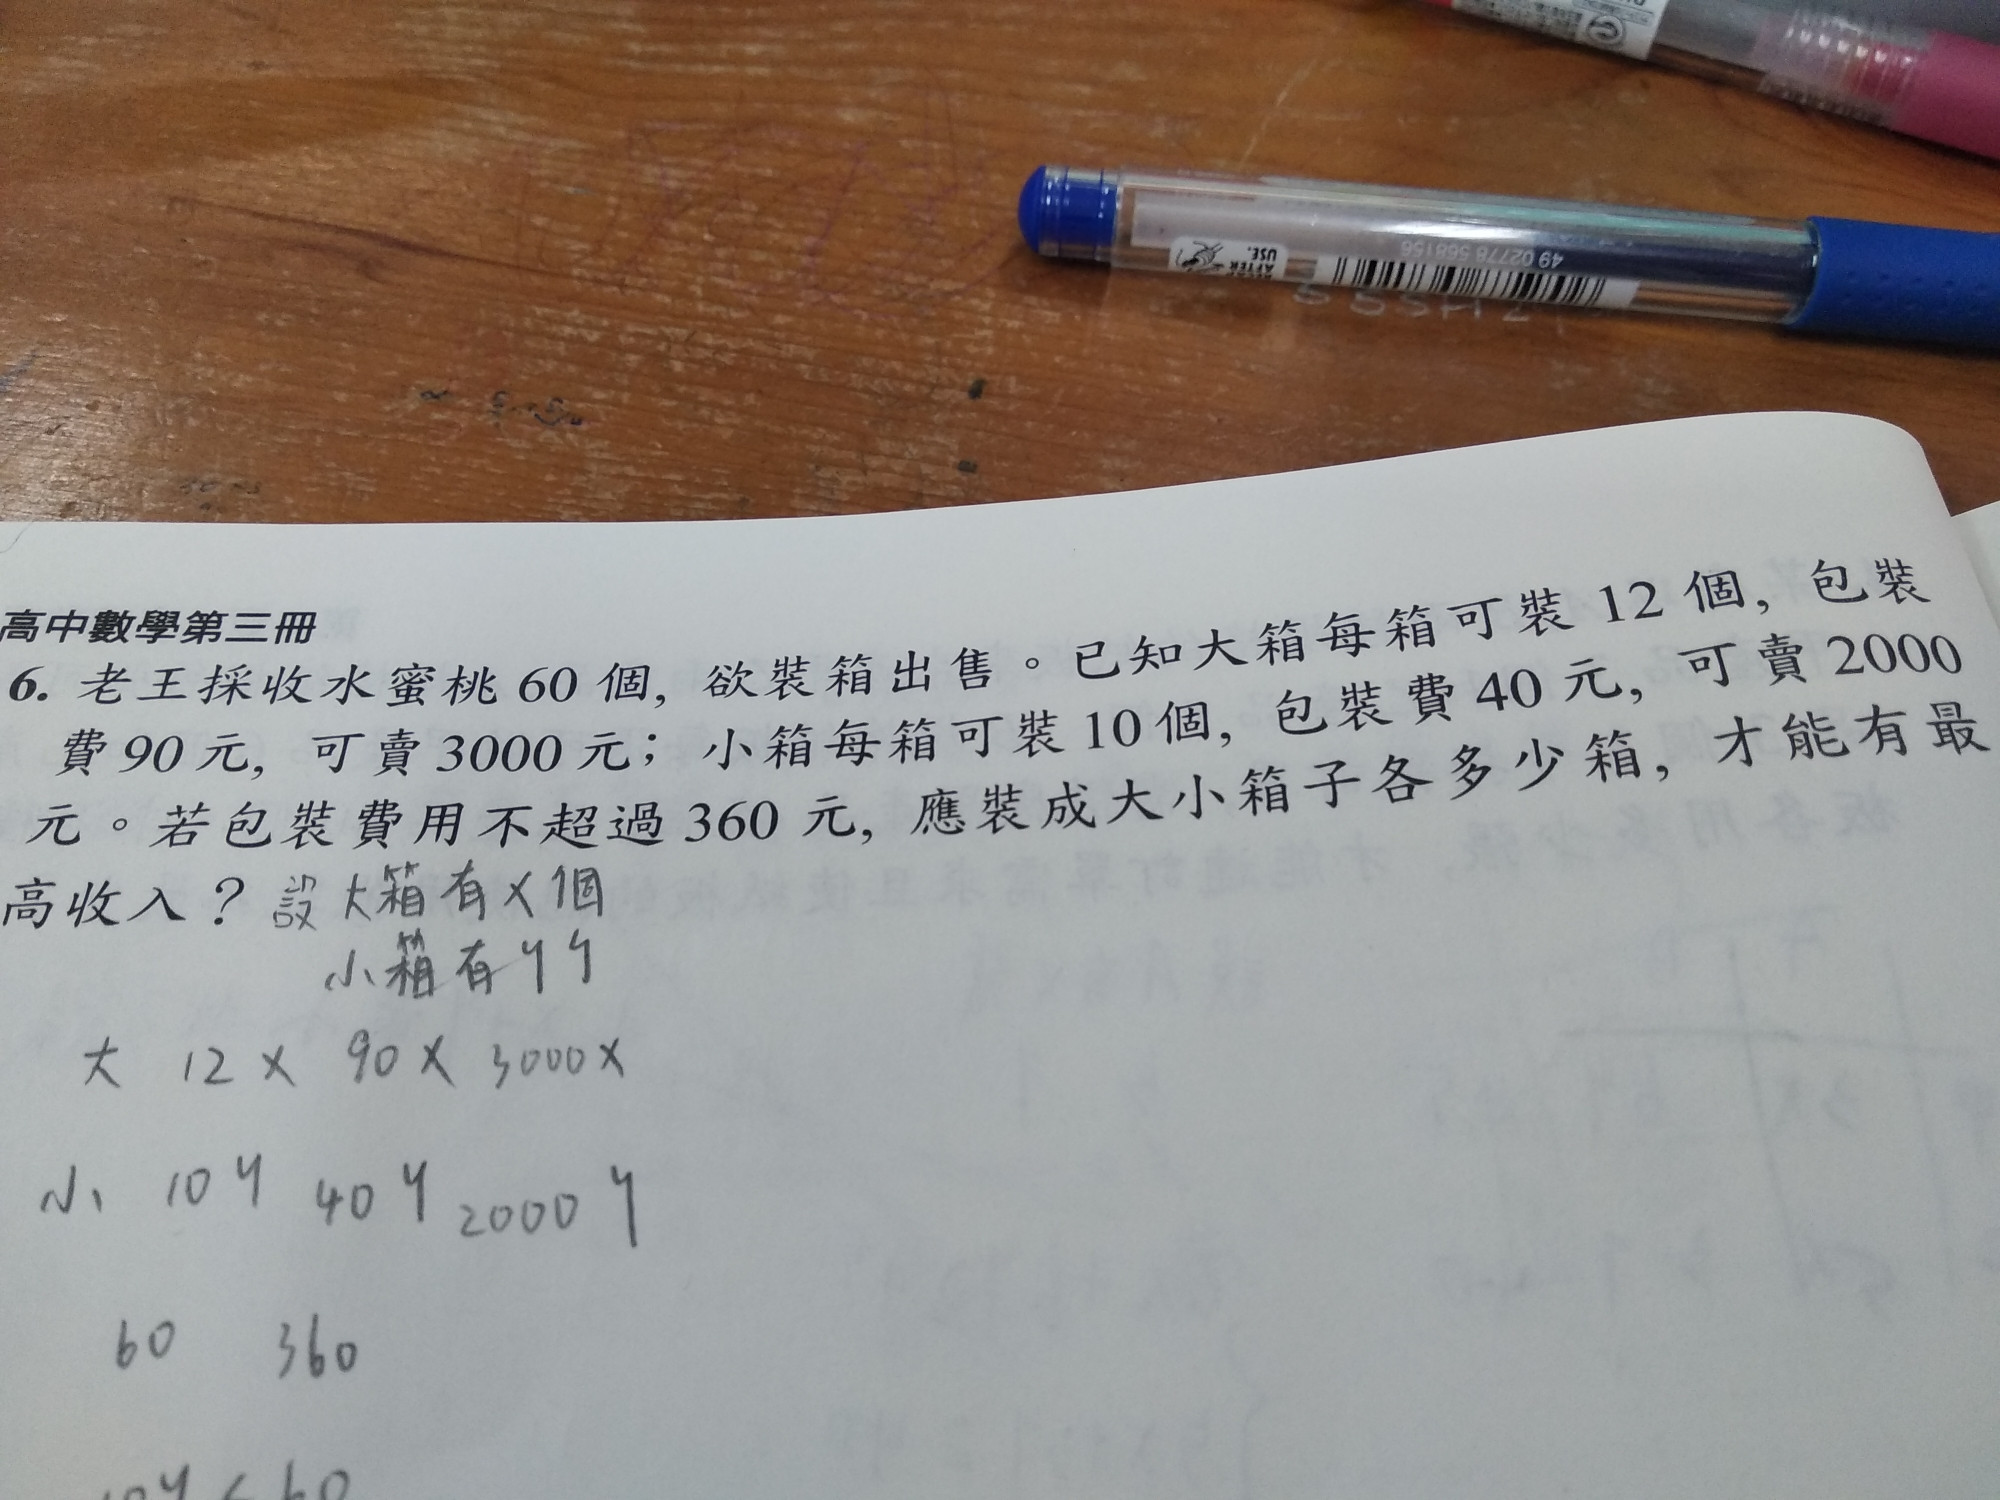 AFTER
USE.
49 02778 568156
高中數學第三冊
6. 老王採收水蜜桃 60 個, 欲裝箱出售。已知大箱每箱可裝 12 個, 包裝
費 90 元, 可賣 3000 元; 小箱每箱可裝 10 個, 包裝費 40 元, 可賣 2000
元。若包裝費用不超過 360 元, 應裝成大小箱子各多少箱, 才能有最
高收入? 設大箱有 x 個
小箱有 y
大 12x 90x 3000x
小 10y 40y 2000y
60 360
10y < 60